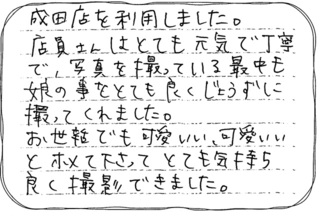 成田店を利用しました。
店員さんはとても元気で丁寧
で、写真を撮っている最中も
娘の事をとても良くじょうずに
撮ってくれました。
お世辞でも可愛いい、可愛いい
とホメて下さってとても気持ち
良く撮影できました。